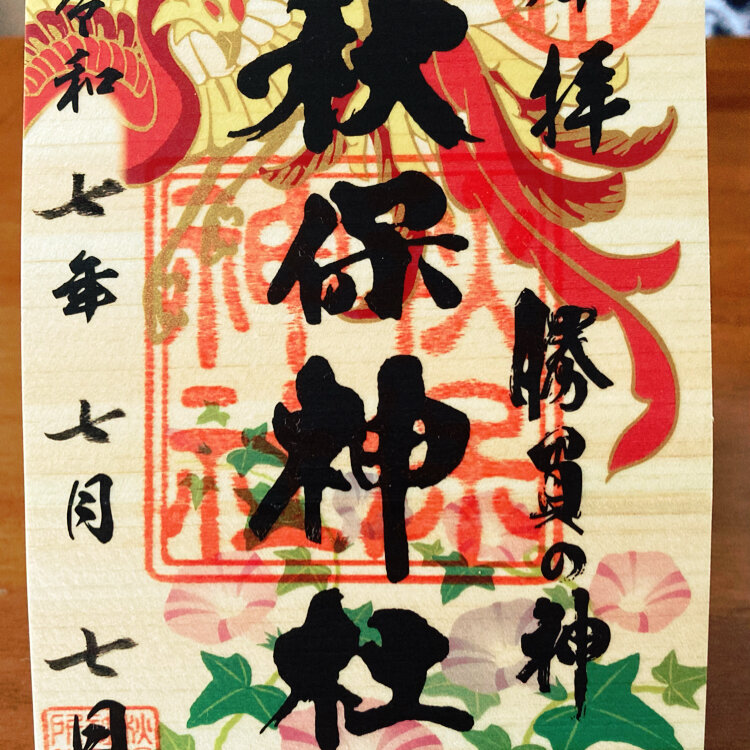 奉拝
勝負の神
秋保神社
令和七年七月七日
秋保神社